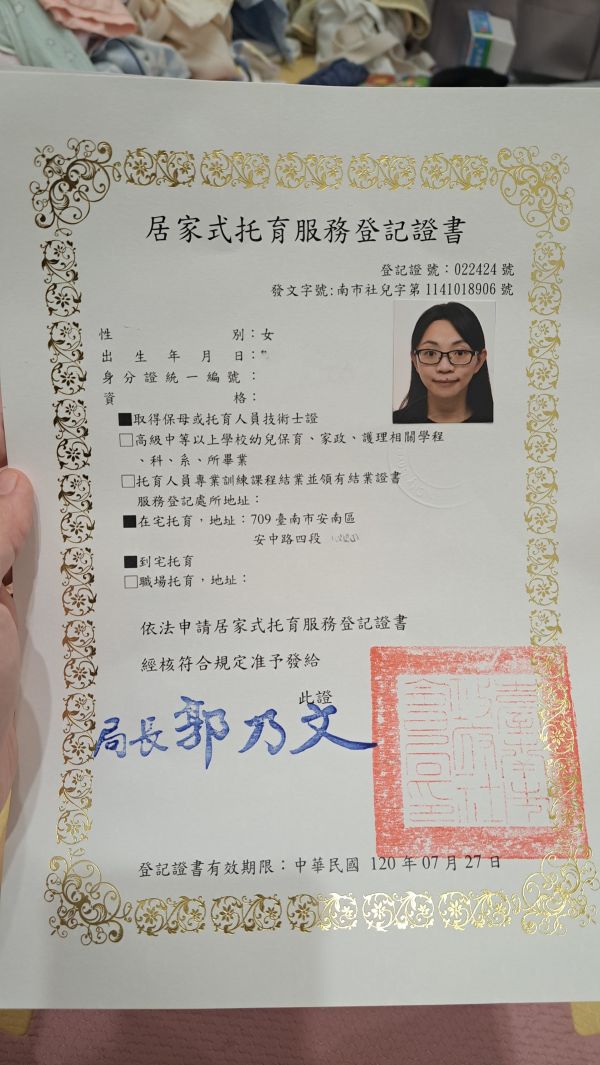 居家式托育服務登記證書
登記證號：022424號
發文字號:南市社兒字第1141018906號
性別：女
出生年月日：
身分證統一編號：
資格：
■取得保母或托育人員技術士證
□高級中等以上學校幼兒保育、家政、護理相關學程
、科、系、所畢業
□托育人員專業訓練課程結業並領有結業證書
服務登記處所地址：
■在宅托育，地址：709臺南市安南區
安中路四段
■到宅托育
□職場托育，地址：
依法申請居家式托育服務登記證書
經核符合規定准予發給
此證
局長郭乃文
臺南市政府社會局印
登記證書有效期限：中華民國 120 年 07 月 27 日